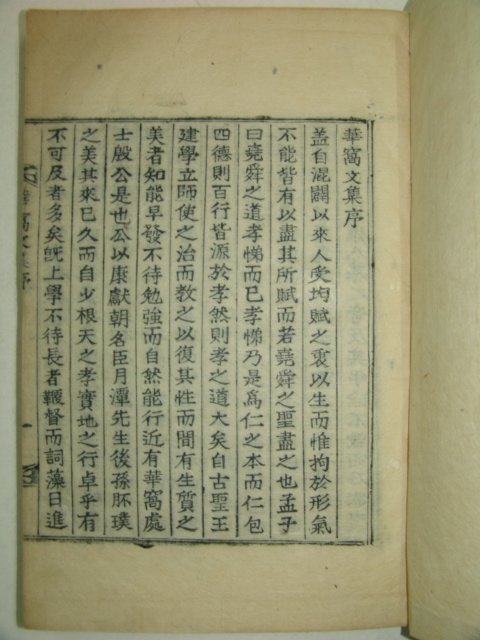 華窩文集序
盖自混闢以來人受均賦之衷以生而惟拘於形氣
不能皆有以盡其所賦而若堯舜之聖盡之也孟子
曰堯舜之道孝悌而已孝悌乃是爲仁之本而仁包
四德則百行皆源於孝然則孝之道大矣自古聖王
建學立師使之治而教之以復其性而間有生質之
美者知能早發不待勉強而自然能行近有華窩處
士殷公是也公以康獻朝名臣月潭先生後孫胚璞
之美其來已久而自少根天之孝實地之行卓乎有
不可及者多矣旣上學不待長者鞭督而詞藻日進
華窩文集序
一